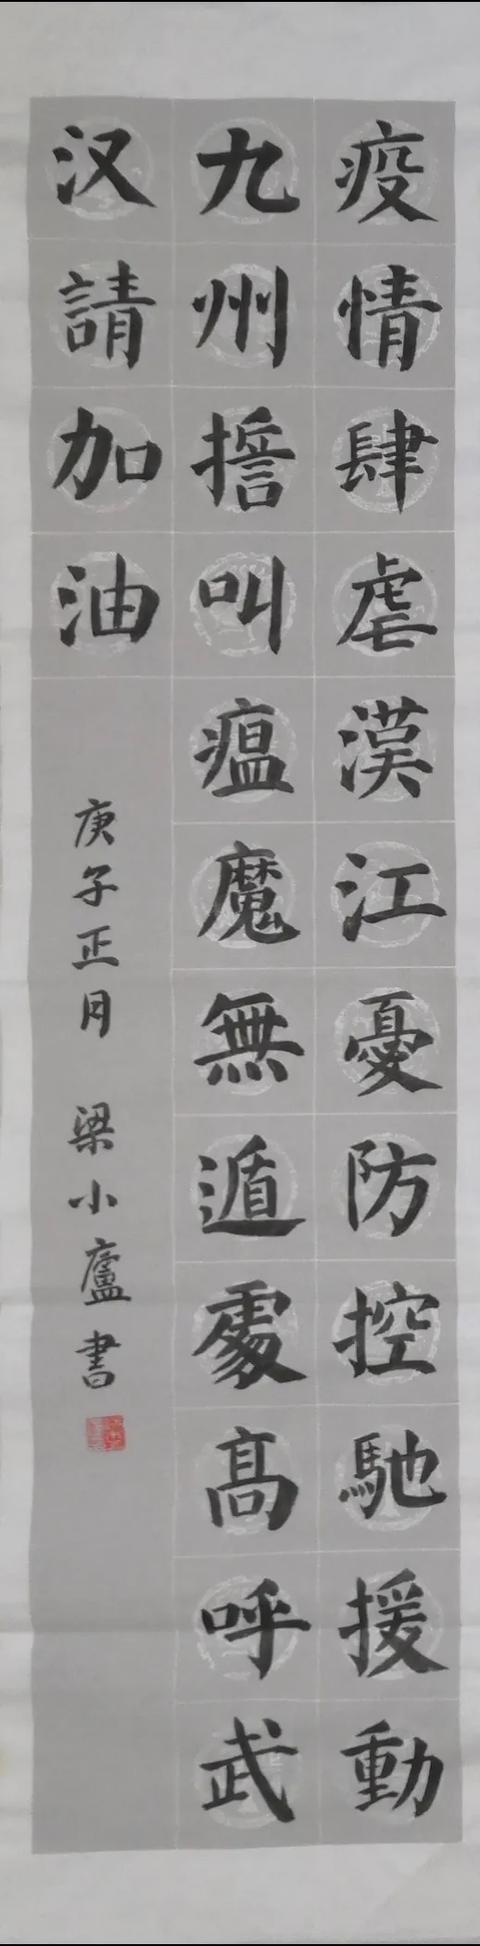 疫情肆虐漢江憂防控馳援動
九州擔叫瘟魔無遁處高呼武
汉請加油
庚子正月 梁小廬書